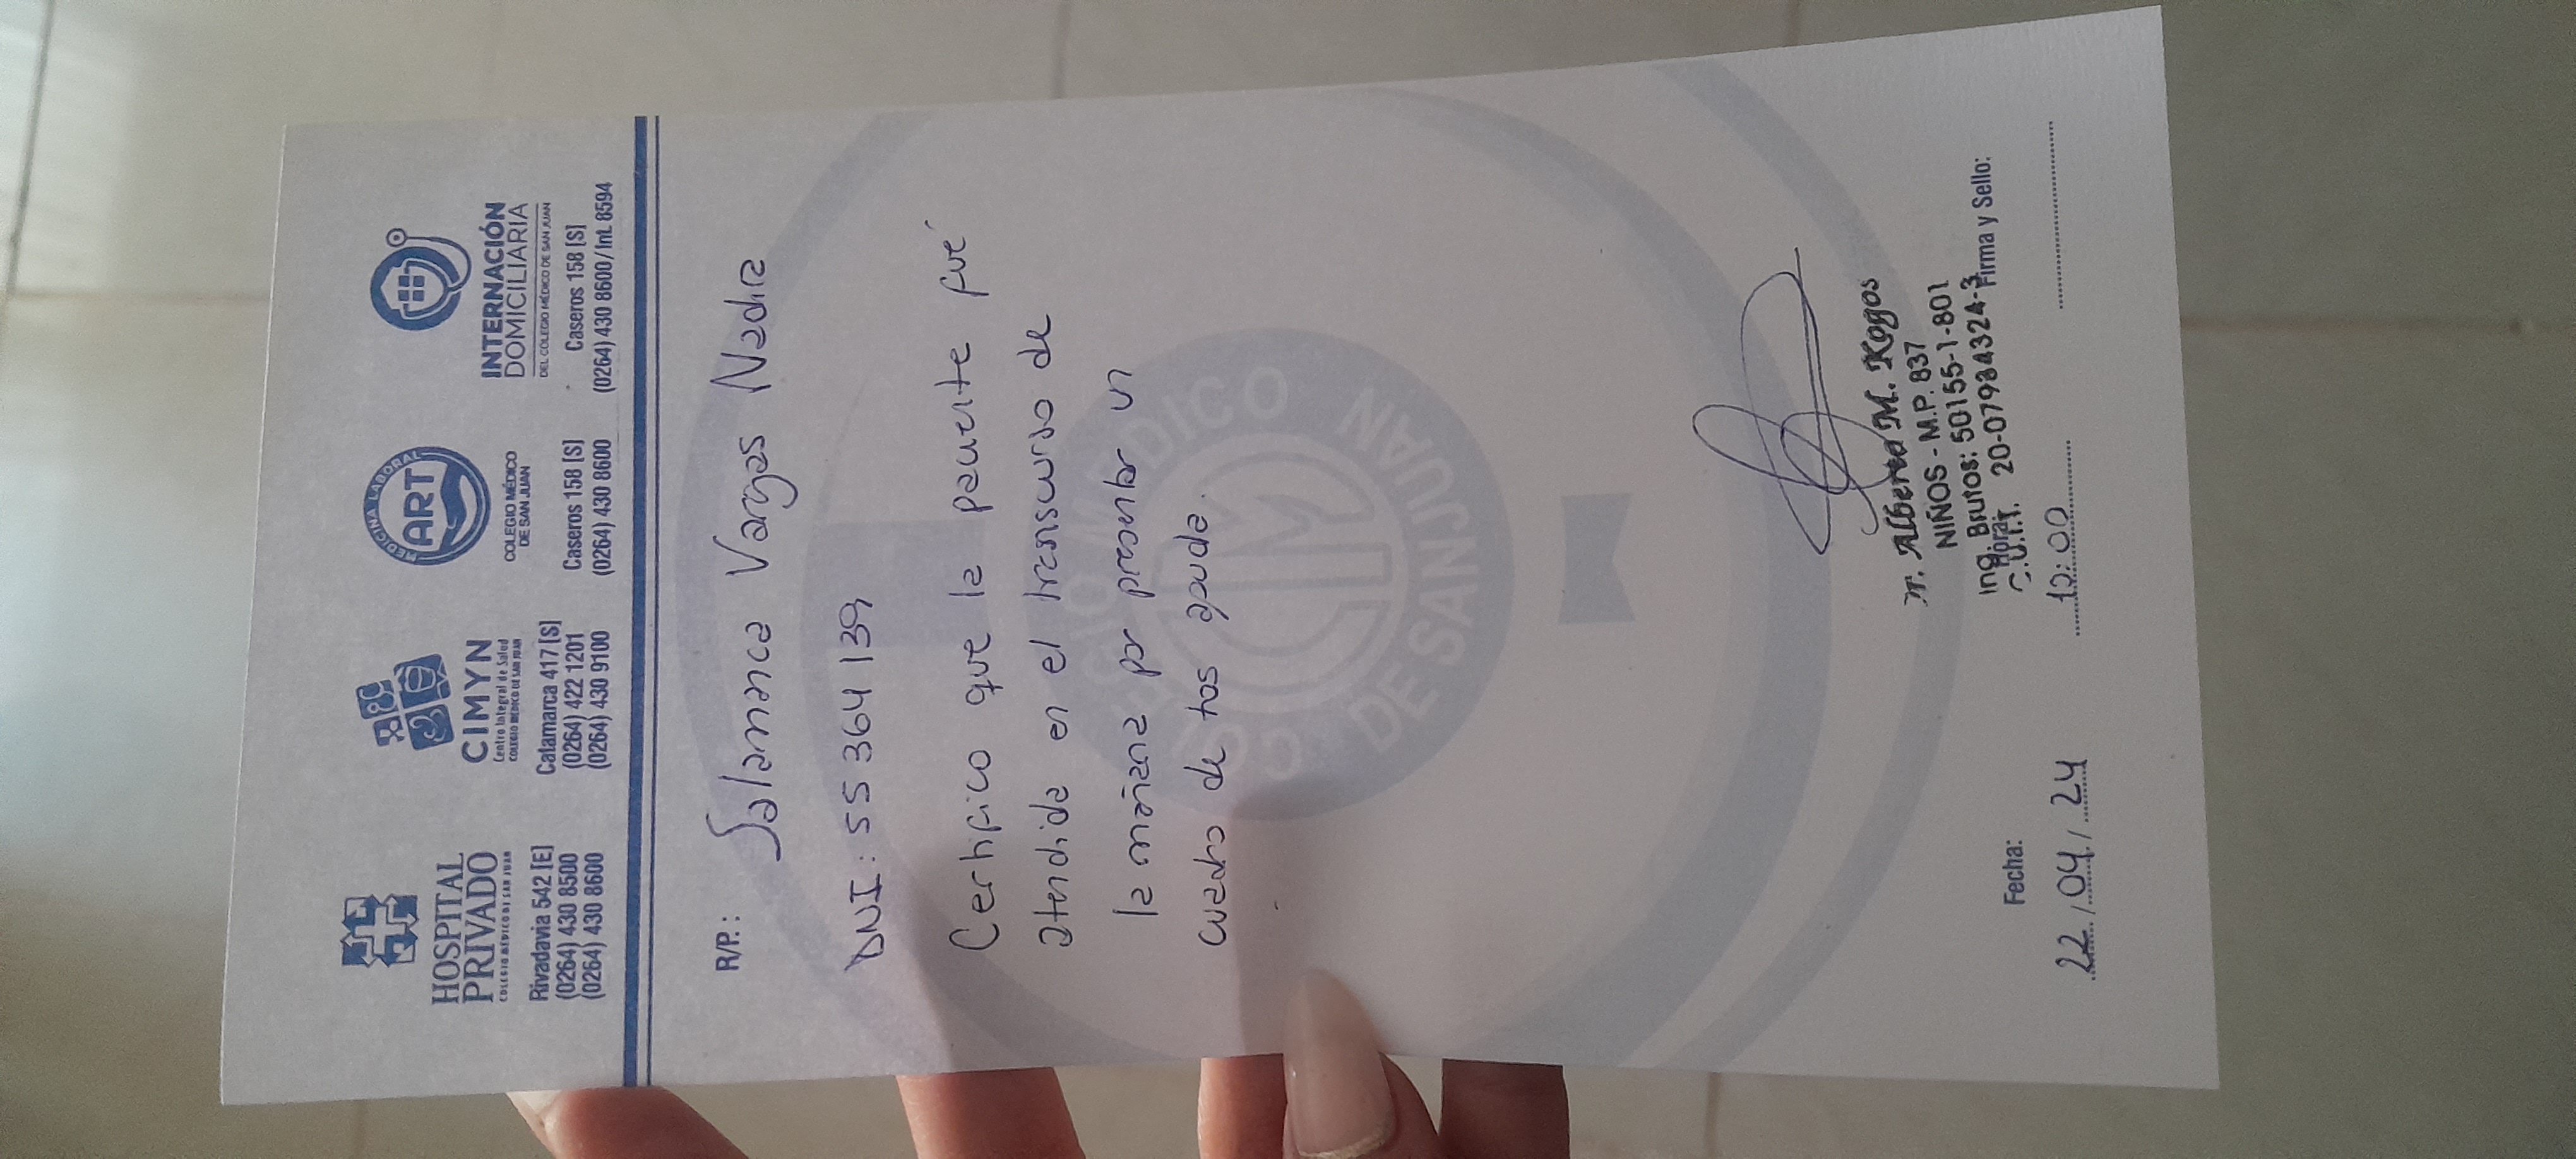 HOSPITAL
PRIVADO
COLEGIO MÉDICO DE SAN JUAN
Rivadavia 542 [E]
(0264) 430 8500
(0264) 430 8600
CIMYN
Centro Integral de Salud
COLEGIO MEDICO DE SAN JUAN
Catamarca 417 [S]
(0264) 422 1201
(0264) 430 9100
MEDICINA LABORAL
ART
COLEGIO MÉDICO
DE SAN JUAN
Caseros 158 [S]
(0264) 430 8600
INTERNACIÓN
DOMICILIARIA
DEL COLEGIO MÉDICO DE SAN JUAN
Caseros 158 [S]
(0264) 430 8600/Int. 8594
R/P.: Salamanca Vargas Nadia
DNI: 55 364 139
Certifico que la paciente fué
atendida en el transcurso de
la mañana por presentar un
cuadro de tos aguda.
COLEGIO MÉDICO
DE SAN JUAN
CM
Dr. Alberto M. Kogos
NIÑOS - M.P. 837
Ing. Brutos: 50155-1-801
C.U.I.T. 20-07984324-3
Fecha:
Hora:
Firma y Sello:
22/04/24
12:00